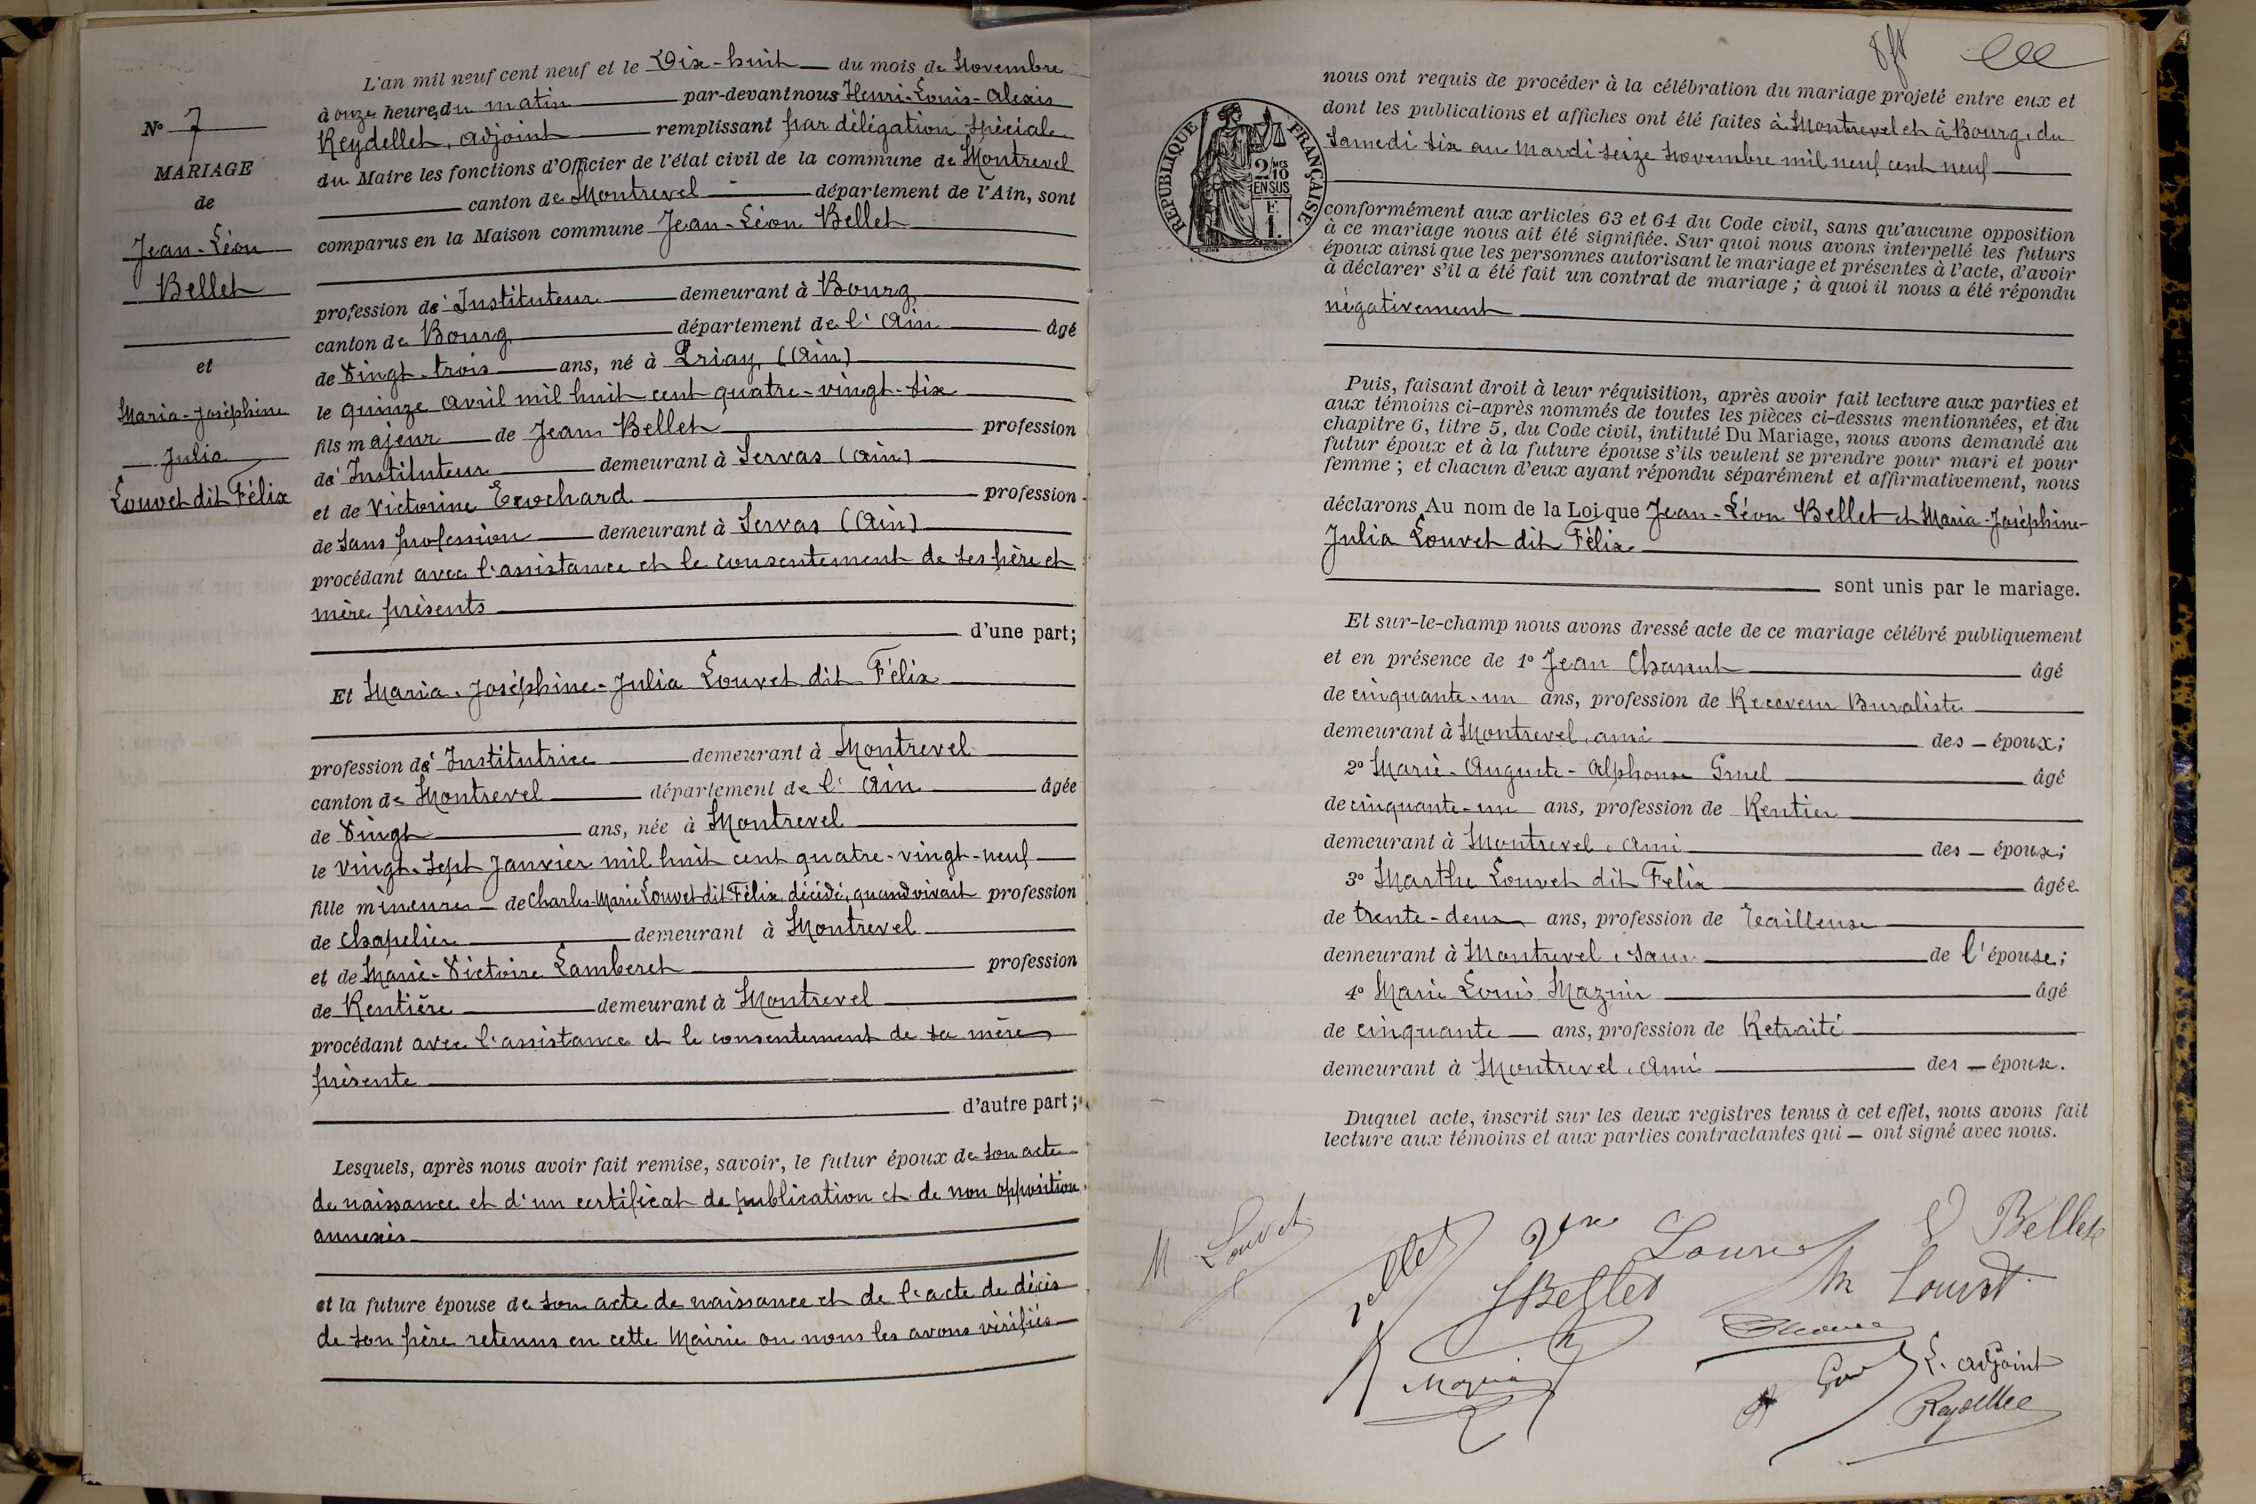 L'an mil neuf cent neuf et le Dix-huit du mois de Novembre
à onze heures du matin par-devant nous Henri-Louis-Alexis
Reydellet, adjoint remplissant par délégation spéciale
du Maire les fonctions d'Officier de l'état civil de la commune de Montrevel
canton de Montrevel département de l'Ain, sont
comparus en la Maison commune Jean-Léon Bellet
profession d' Instituteur demeurant à Bourg
canton de Bourg département de l' Ain âgé
de vingt-trois ans, né à Priay (Ain)
le quinze avril mil huit cent quatre-vingt-six
fils majeur de Jean Bellet profession
d' Instituteur demeurant à Servas (Ain)
et de Victorine profession
de sans profession demeurant à Servas (Ain)
procédant avec l'assistance et le consentement de ses père et
mère présents
d'une part;
Et Maria-Joséphine-Julia Louvet dit Félix
profession d' Institutrice demeurant à Montrevel
canton de Montrevel département de l' Ain âgée
de vingt ans, née à Montrevel
le vingt-sept Janvier mil huit cent quatre-vingt-neuf
fille mineure de Charles-Marie Louvet dit Félix, décédé, quand vivait profession
de chapelier demeurant à Montrevel
et de Marie-Victoire Lamberet profession
de Rentière demeurant à Montrevel
procédant avec l'assistance et le consentement de sa mère
présente
d'autre part;
Lesquels, après nous avoir fait remise, savoir, le futur époux de son acte
de naissance et d'un certificat de publication et de non opposition
annexés
et la future épouse de son acte de naissance et de l'acte de décès
de son père retenus en cette Mairie ou nous les avons vérifiés
N° 7
MARIAGE
de
Jean-Léon
Bellet
et
Maria-Joséphine
Julia
Louvet dit Félix
nous ont requis de procéder à la célébration du mariage projeté entre eux et
dont les publications et affiches ont été faites à Montrevel et à Bourg, du
Samedi six au Mardi seize Novembre mil neuf cent neuf
conformément aux articles 63 et 64 du Code civil, sans qu'aucune opposition
à ce mariage nous ait été signifiée. Sur quoi nous avons interpellé les futurs
époux ainsi que les personnes autorisant le mariage et présentes à l'acte, d'avoir
à déclarer s'il a été fait un contrat de mariage; à quoi il nous a été répondu
négativement
Puis, faisant droit à leur réquisition, après avoir fait lecture aux parties et
aux témoins ci-après nommés de toutes les pièces ci-dessus mentionnées, et du
chapitre 6, titre 5, du Code civil, intitulé Du Mariage, nous avons demandé au
futur époux et à la future épouse s'ils veulent se prendre pour mari et pour
femme; et chacun d'eux ayant répondu séparément et affirmativement, nous
déclarons Au nom de la Loi que Jean-Léon Bellet et Maria-Joséphine-
Julia Louvet dit Félix
sont unis par le mariage.
Et sur-le-champ nous avons dressé acte de ce mariage célébré publiquement
et en présence de 1° Jean Chanut âgé
de cinquante-un ans, profession de Receveur Buraliste
demeurant à Montrevel, ami des époux;
2° Marie-Auguste-Alphonse Gruel âgé
de cinquante-un ans, profession de Rentier
demeurant à Montrevel, ami des époux;
3° Marthe Louvet dit Felix âgée
de trente-deux ans, profession de Tailleuse
demeurant à Montrevel, sœur de l'épouse;
4° Marie Louis Mazuir âgé
de cinquante ans, profession de Retraité
demeurant à Montrevel, Ami des épouse.
Duquel acte, inscrit sur les deux registres tenus à cet effet, nous avons fait
lecture aux témoins et aux parties contractantes qui ont signé avec nous.
RÉPUBLIQUE FRANÇAISE
2/10 MES
EN SUS
F.
1.
M Louvet
Vve Louvet
V Bellet
JBellet
M Louvet
Mazuir
L. adjoint
Reydellet